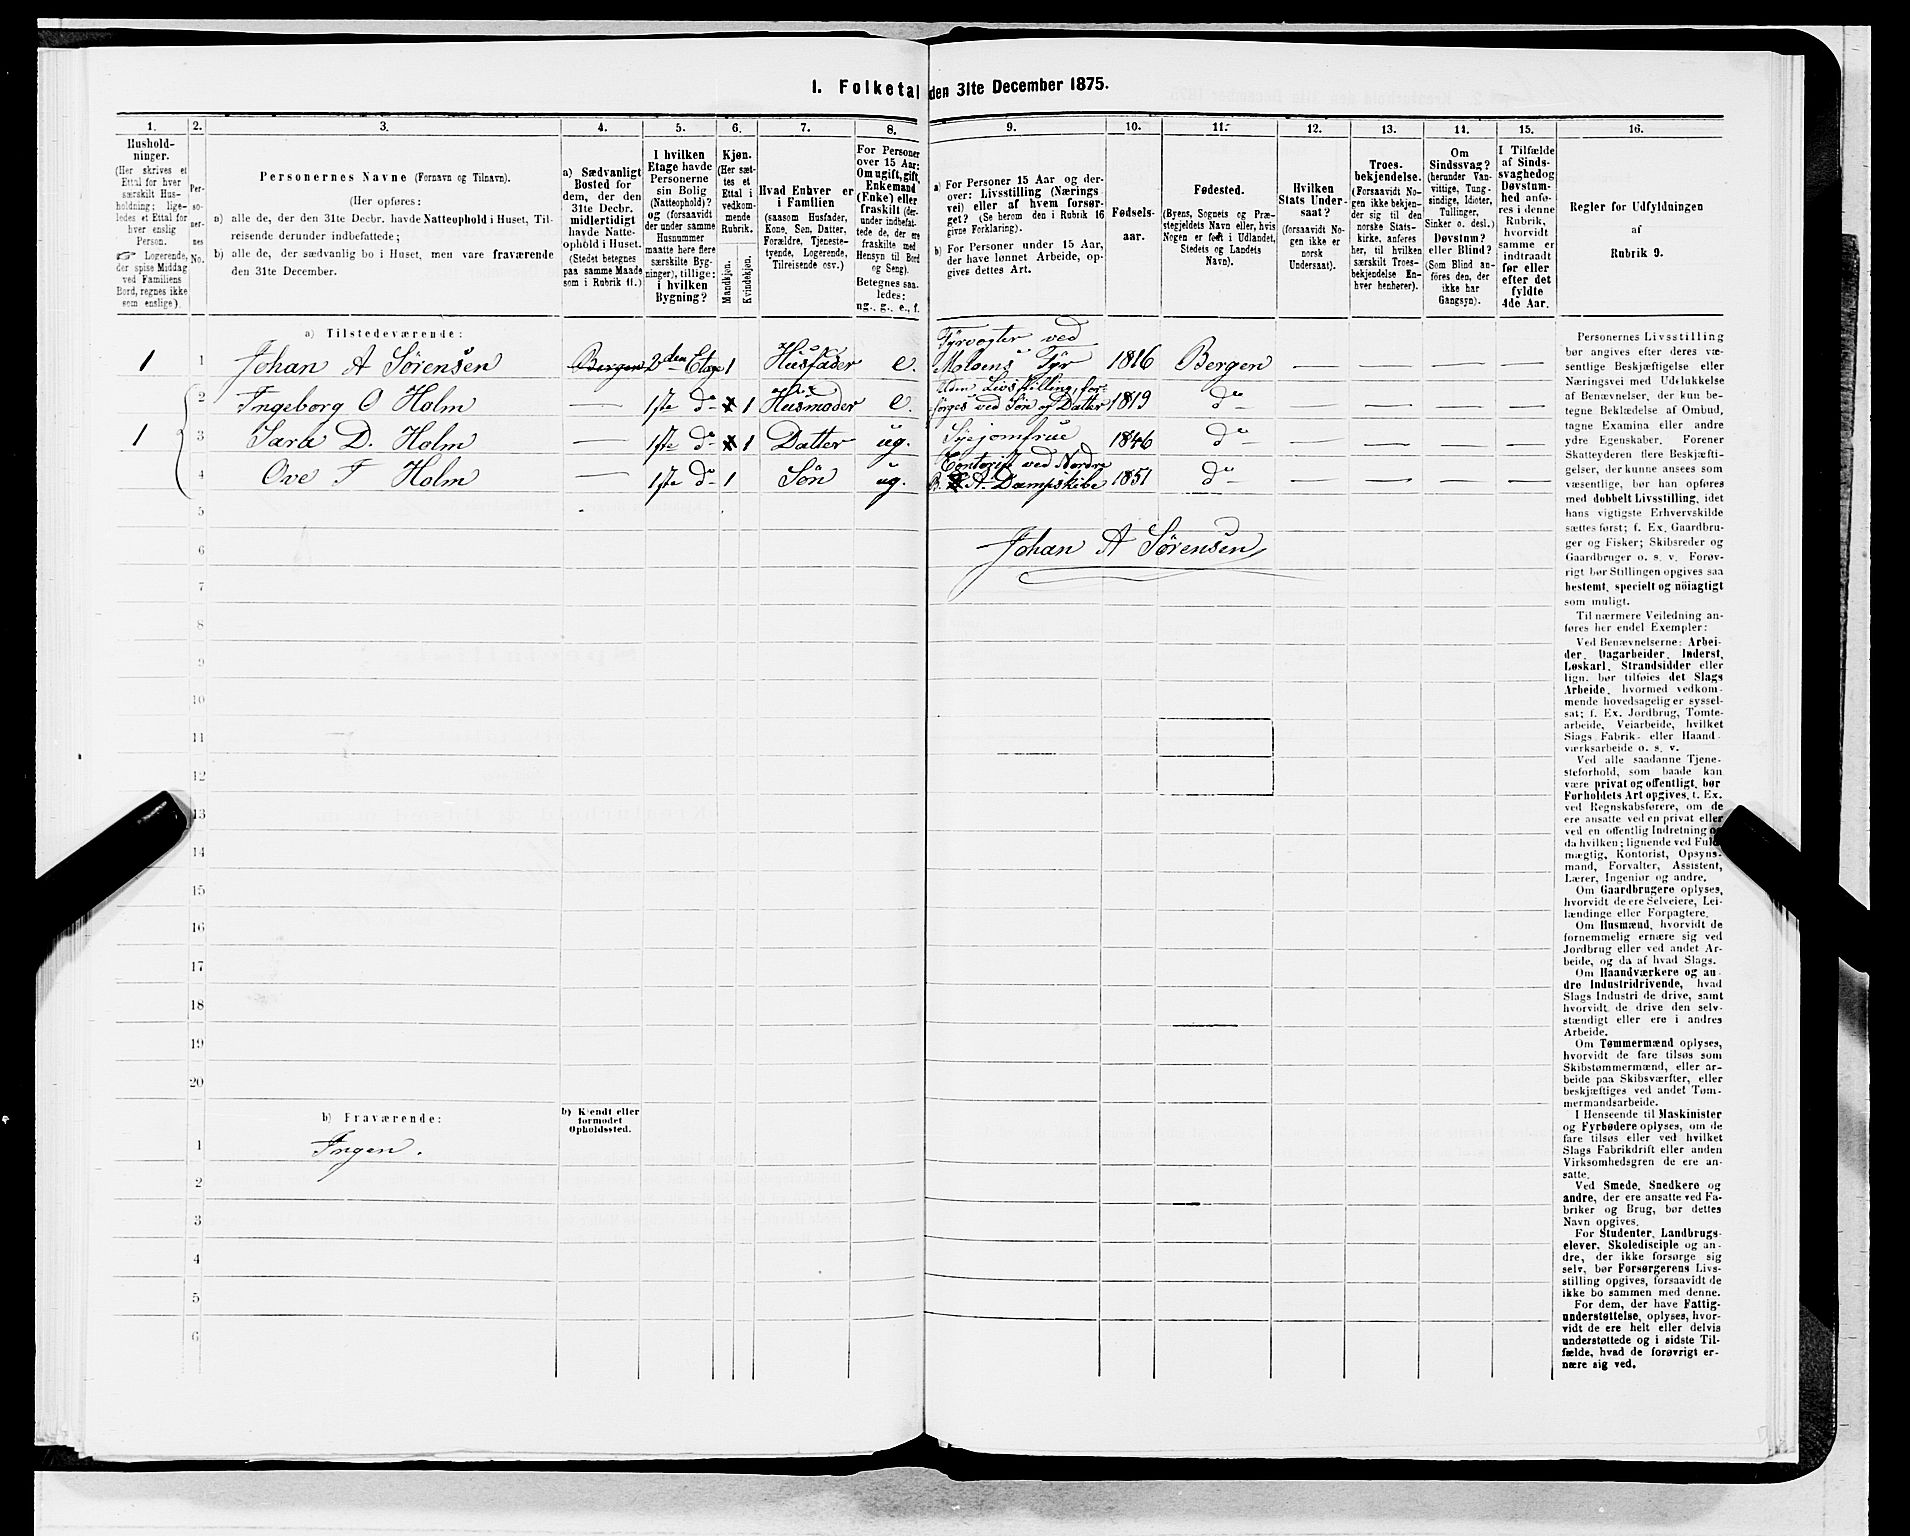 1. Folketal den 31te December 1875.
1.
2.
3.
4.
5.
6.
7.
8.
9.
10.
11.
12.
13.
14.
15.
16.
Hushold-
ninger.
(Her skrives et
Ettal for hver
særskilt Hus-
holdning; lige-
ledes et Ettal for
hver enslig
Person.
☞ Logerende,
der spise Middag
ved Familiens
Bord, regnes ikke
som enslige).
Per-
so-
ner-
nes
No.
Personernes Navne (Fornavn og Tilnavn).
(Her opføres:
a) alle de, der den 31te Decbr. havde Natteophold i Huset, Til-
reisende derunder indbefattede;
b) alle de, der sædvanlig bo i Huset, men vare fraværende
den 31te December.
a) Sædvanligt
Bosted for
dem, der den
31te Decbr.
midlertidigt
havde Natte-
ophold i Huset.
(Stedet betegnes
paa samme Maade
som i Rubrik 11.)
I hvilken
Etage havde
Personerne
sin Bolig
(Natteophold)?
og (forsaavidt
der under samme
Husnummer
maatte høre flere
særskilte Byg-
ninger), tillige:
i hvilken
Bygning?
Kjøn.
(Her sæt-
tes et
Ettal i
vedkom-
mende
Rubrik.
Mandkjøn.
Kvindekjøn.
Hvad Enhver er
i Familien
(saasom Husfader,
Kone, Søn, Datter,
Forældre, Tjeneste-
tyende, Logerende,
Tilreisende osv.)
For Personer
over 15 Aar:
Om ugift, gift,
Enkemand
(Enke) eller
fraskilt (der-
under indbefat-
tede de, der ere
fraskilte med
Hensyn til Bord
og Seng).
Betegnes saa-
ledes:
ug., g., e., f.
a) For Personer 15 Aar og der-
over: Livsstilling (Nærings
vei) eller af hvem forsør-
get? (Se herom den i Rubrik 16
givne Forklaring).
b) For Personer under 15 Aar,
der have lønnet Arbeide, op-
gives dettes Art.
Fødsels-
aar.
Fødested.
(Byens, Sognets og Præ-
stegjeldets Navn eller, hvis
Nogen er født i Udlandet,
Stedets og Landets
Navn).
Hvilken
Stats Under-
saat?
(forsaavidt No-
gen ikke er
norsk
Undersaat).
Troes-
bekjendelse.
(Forsaavidt No-
gen ikke bekjen-
der sig til den
norske Stats-
kirke, anføres
her, til hvilken
særskilt Troes-
bekjendelse En-
hver henhører).
Om
Sindssvag?
(herunder Van-
vittige, Tung-
sindige, Idioter,
Tullinger,
Sinker o. desl.)
Døvstum?
eller Blind?
(Som Blind an-
føres den, der
ikke har
Gangsyn).
I Tilfælde
af Sinds-
svaghed og
Døvstum-
hed anfø-
res i denne
Rubrik,
hvorvidt
samme er
indtraadt
før eller
efter det
fyldte
4de Aar.
Regler for Udfyldningen
af
Rubrik 9.
a) Tilstedeværende:
1 1 Johan A Sørensen Bergen 2den Etage 1 Husfader e. Fyrvogter ved
Moloens Fyr 1816 Bergen — — — —
2 Ingeborg O Holm — 1ste do 1 Husmoder e. Uden Livsstilling, for-
sørges ved Søn og Datter 1819 do — — — —
1 3 Sara D. Holm — 1ste do 1 Datter ug. Syejomfrue 1846 do — — — —
4 Ove T Holm — 1ste do 1 Søn ug. Contorist ved Nordre
B. A. Dampskibe 1851 do — — — —
5
6 Johan A Sørensen
7
8
9
10
11
12
13
14
15
16
17
18
19
20
b) Fraværende:
b) Kjendt eller
formodet
Opholdssted.
1 Ingen.
2
3
4
5
6
Personernes Livsstilling
bør angives efter deres væ-
sentlige Beskjæftigelse eller
Næringsvei med Udelukkelse
af Benævnelser, der kun be-
tegne Beklædelse af Ombud,
tagne Examina eller andre
ydre Egenskaber. Forener
Skatteyderen flere Beskjæfti-
gelser, der kunne ansees som
væsentlige, bør han opføres
med dobbelt Livsstilling, idet
hans vigtigste Erhvervskilde
sættes først; f. Ex. Gaardbru-
ger og Fisker; Skibsreder og
Gaardbruger o. s. v. Forøv-
rigt bør Stillingen opgives saa
bestemt, specielt og nöiagtigt
som muligt.
Til nærmere Veiledning an-
føres her endel Exempler:
Ved Benævnelserne: Arbei-
der, Dagarbeider, Inderst,
Løskarl, Strandsidder eller
lign. bør tilføies det Slags
Arbeide, hvormed vedkom-
mende hovedsagelig er syssel-
sat; f. Ex. Jordbrug, Tomte-
arbeide, Veiarbeide, hvilket
Slags Fabrik- eller Haand-
værksarbeide o. s. v.
Ved alle saadanne Tjene-
steforhold, som baade kan
være privat og offentligt, bør
Forholdets Art opgives, f. Ex.
ved Regnskabsførere, om de
ere ansatte ved en privat eller
ved en offentlig Indretning og
da hvilken; lignende ved Fuld-
mægtig, Kontorist, Opsyns-
mand, Forvalter, Assistent,
Lærer, Ingeniør og andre.
Om Gaardbrugere oplyses,
hvorvidt de ere Selveiere, Lei-
lændinge eller Forpagtere.
Om Husmænd, hvorvidt de
fornemmelig ernære sig ved
Jordbrug eller ved andet Ar-
beide, og da af hvad Slags.
Om Haandværkere og an-
dre Industridrivende, hvad
Slags Industri de drive, samt
hvorvidt de drive den selv-
stændigt eller ere i andres
Arbeide.
Om Tømmermænd oplyses,
hvorvidt de fare tilsøs som
Skibstømmermænd, eller ar-
beide paa Skibsværfter, eller
beskjæftiges ved andet Tøm-
mermandsarbeide.
I Henseende til Maskinister
og Fyrbødere oplyses, om de
fare tilsøs eller ved hvilket
Slags Fabrikdrift eller anden
Virksomhedsgren de ere an-
satte.
Ved Smede, Snedkere og
andre, der ere ansatte ved Fa-
briker og Brug, bør dettes
Navn opgives.
For Studenter, Landbrugs-
elever, Skoledisciple og an-
dre, der ikke forsørge sig
selv, bør Forsørgerens Livs-
stilling opgives, forsaavidt de
ikke bo sammen med denne.
For dem, der have Fattig-
understøttelse, oplyses, hvor-
vidt de ere helt eller delvis
understøttede og i sidste Til-
fælde, hvad de forøvrigt er-
nære sig ved.